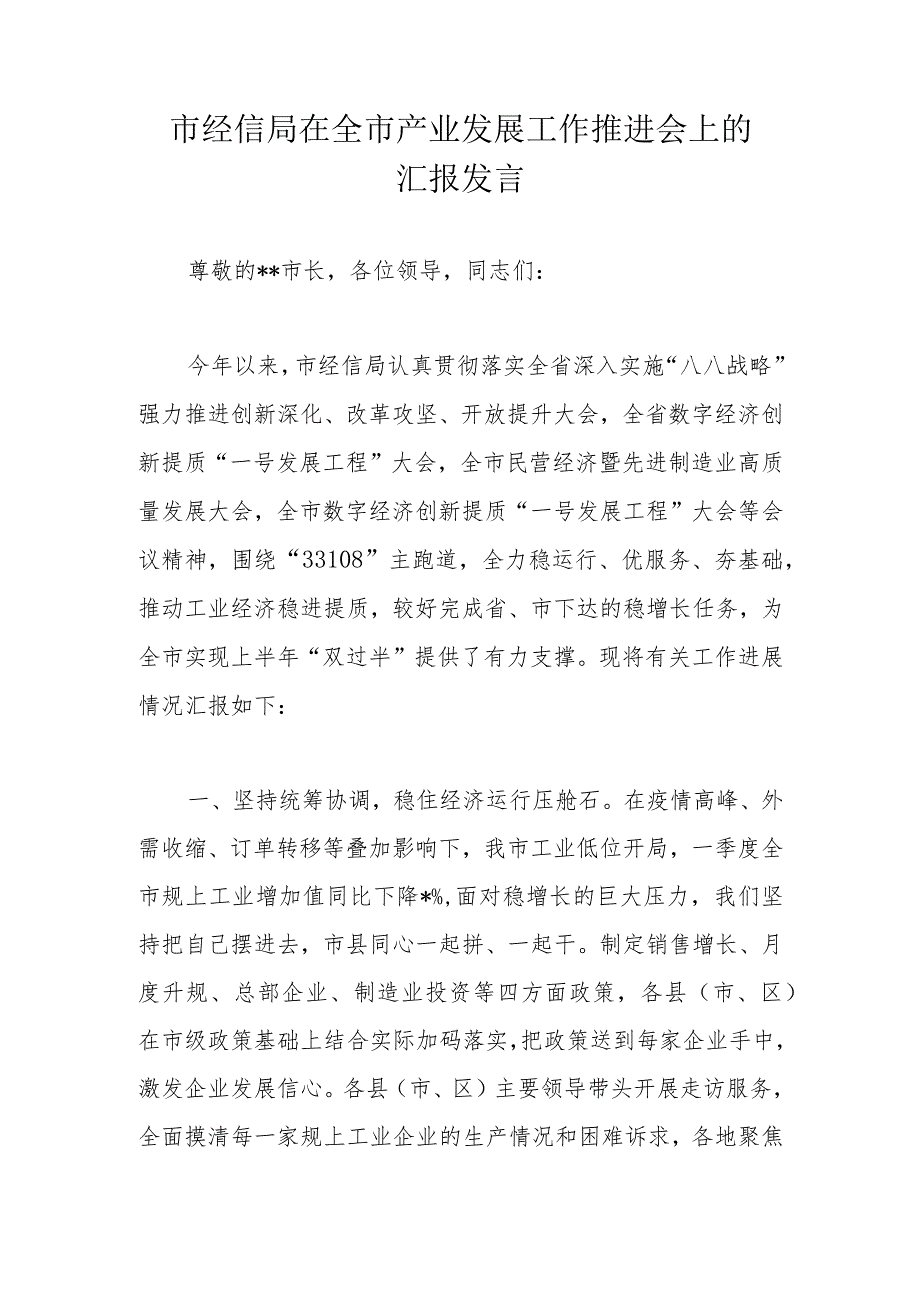 市经信局在全市产业发展工作推进会上的
汇报发言
尊敬的**市长，各位领导，同志们：
今年以来，市经信局认真贯彻落实全省深入实施“八八战略”
强力推进创新深化、改革攻坚、开放提升大会，全省数字经济创
新提质“一号发展工程”大会，全市民营经济暨先进制造业高质
量发展大会，全市数字经济创新提质“一号发展工程”大会等会
议精神，围绕“33108”主跑道，全力稳运行、优服务、夯基础，
推动工业经济稳进提质，较好完成省、市下达的稳增长任务，为
全市实现上半年“双过半”提供了有力支撑。现将有关工作进展
情况汇报如下：
一、坚持统筹协调，稳住经济运行压舱石。在疫情高峰、外
需收缩、订单转移等叠加影响下，我市工业低位开局，一季度全
市规上工业增加值同比下降*%,面对稳增长的巨大压力，我们坚
持把自己摆进去，市县同心一起拼、一起干。制定销售增长、月
度升规、总部企业、制造业投资等四方面政策，各县（市、区）
在市级政策基础上结合实际加码落实，把政策送到每家企业手中，
激发企业发展信心。各县（市、区）主要领导带头开展走访服务，
全面摸清每一家规上工业企业的生产情况和困难诉求，各地聚焦